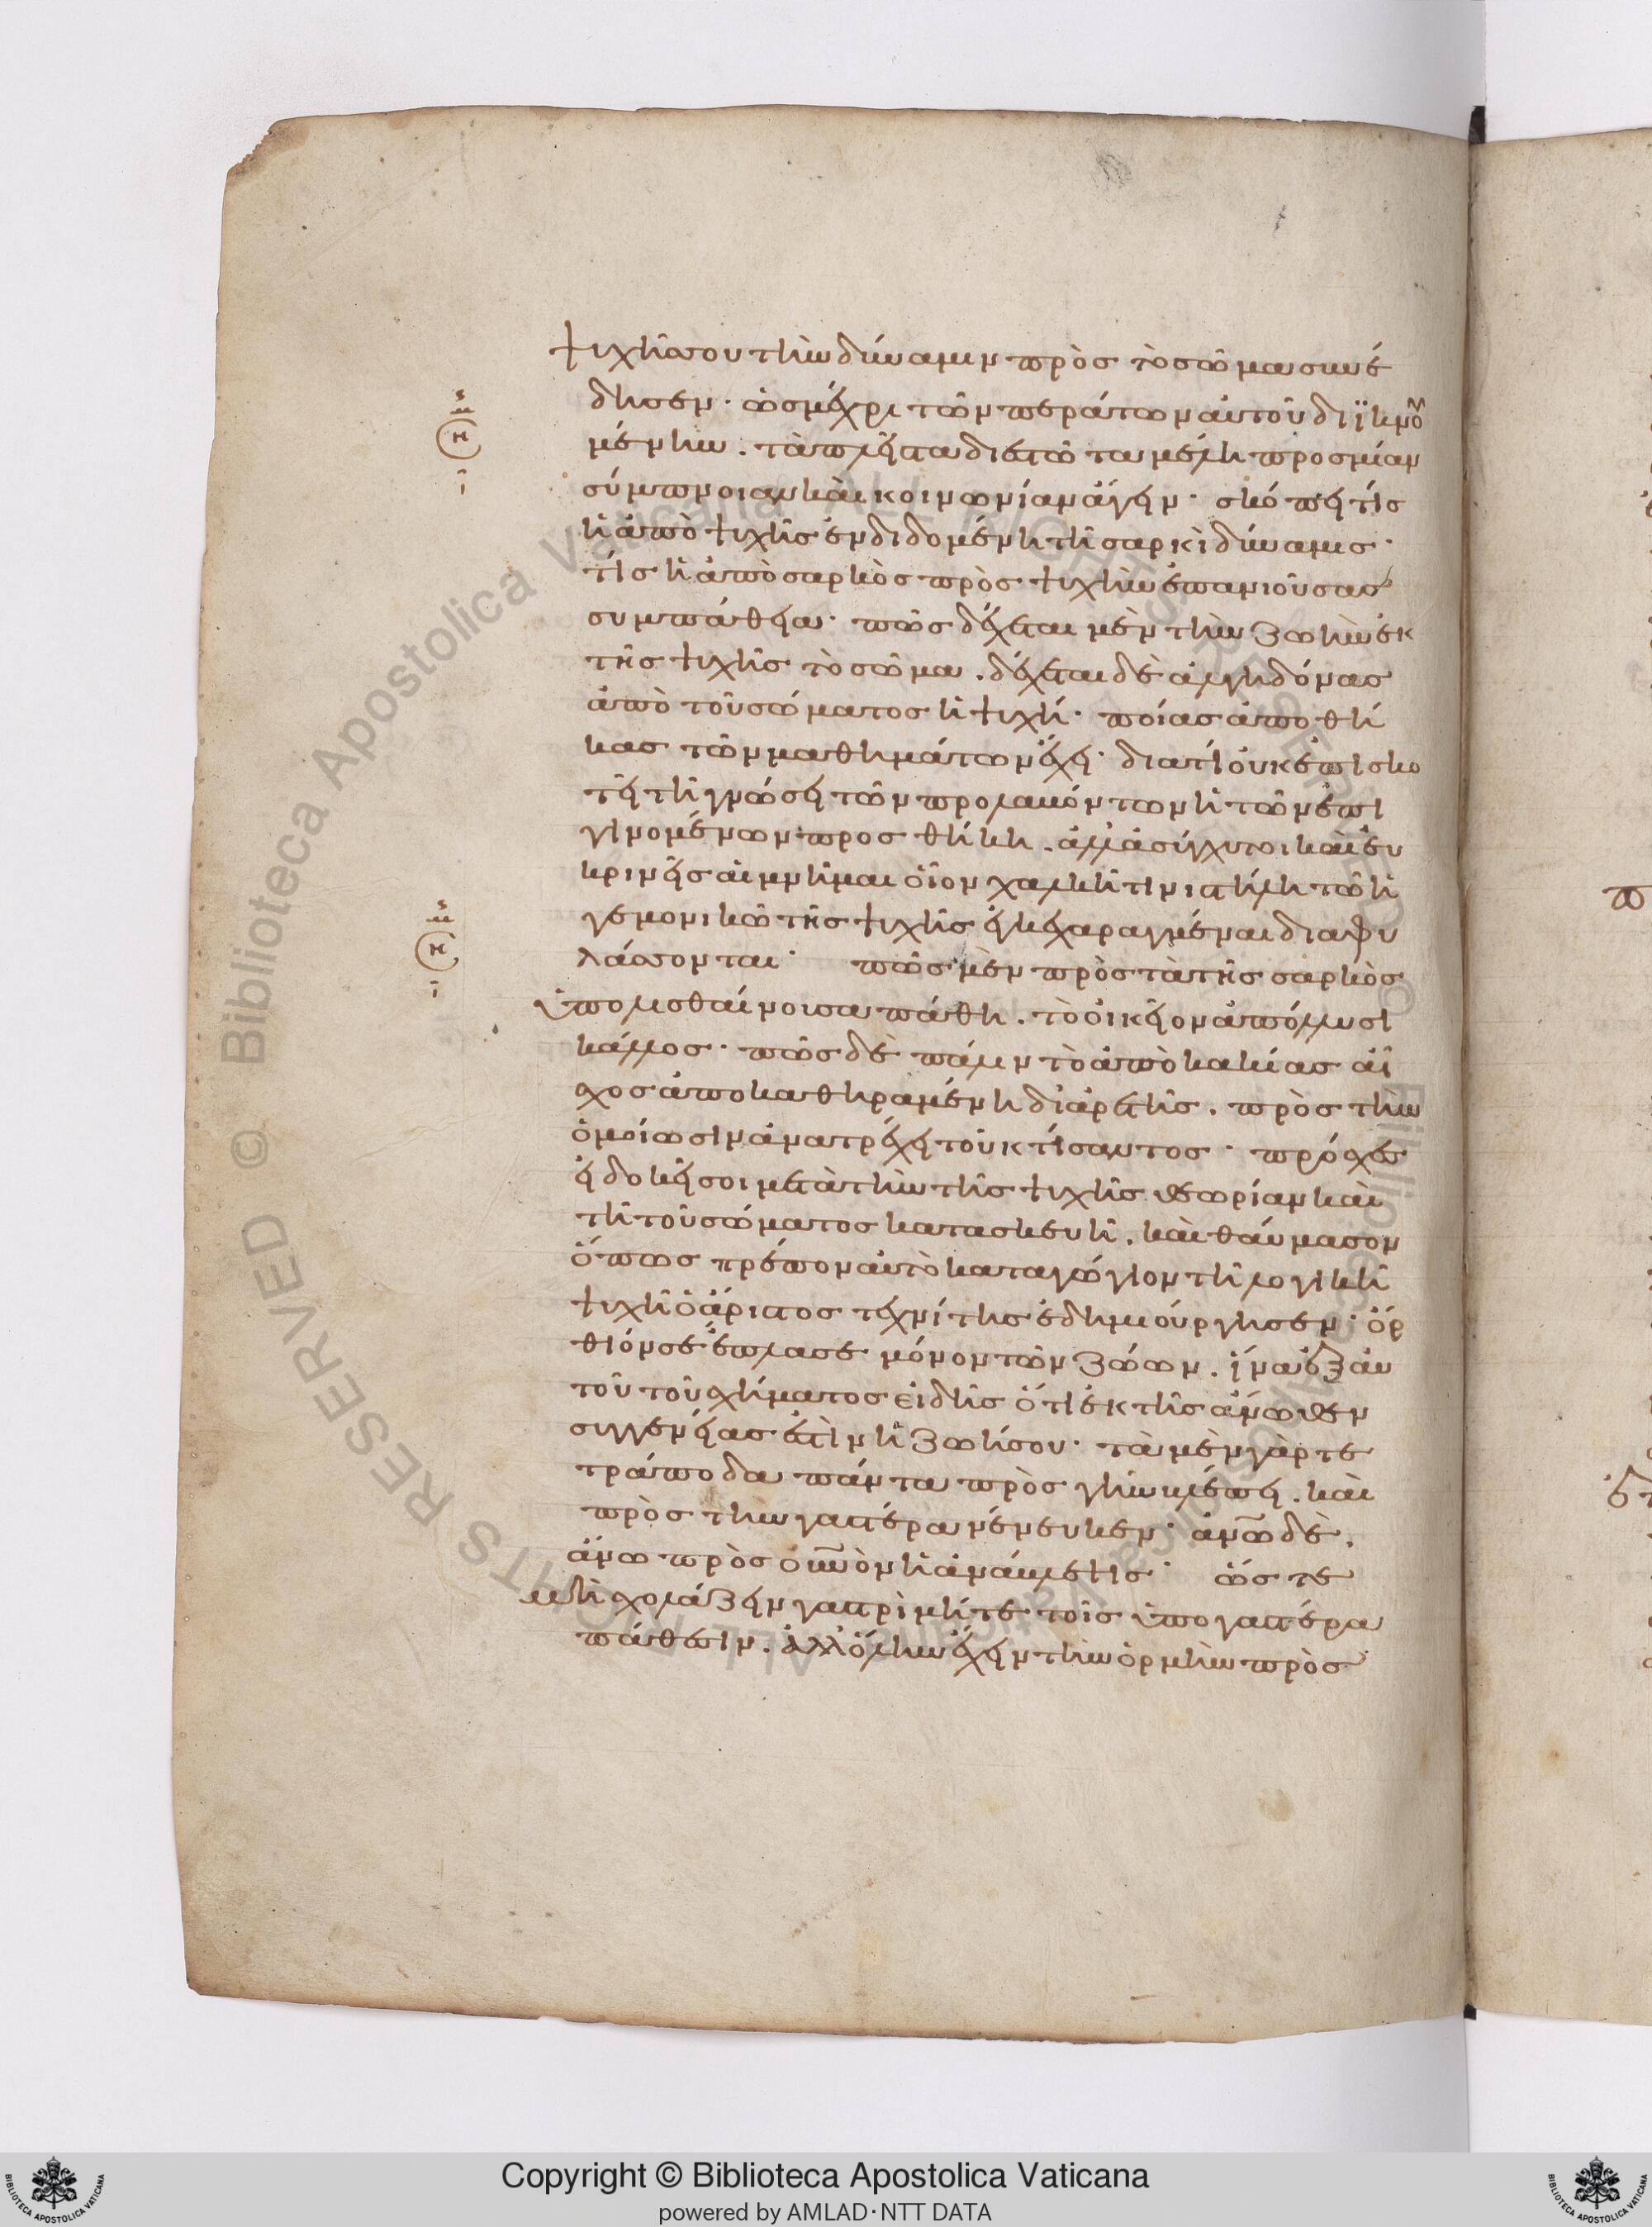 ψυχῆς σου τὴν δύναμιν πρὸς τὸ σῶμα συνέ
δησεν· ὡς μέχρι τῶν περάτων αὐτοῦ διϊκνου
μένην. τὰ πλεῖστα διεστῶτα μέλη πρὸς μίαν
σύμπνοιαν καὶ κοινωνίαν ἄγειν· σκόπει τίς
ἡ ἀπὸ ψυχῆς ἐνδιδομένη τῆ σαρκὶ δύναμις·
τίς ἡ ἀπὸ σαρκὸς πρὸς ψυχὴν ἐπανιοῦσα
συμπάθεια· πῶς δέχεται μὲν τὴν ζωὴν ἐκ
τῆς ψυχῆς τὸ σῶμα. δέχεται δὲ ἀλγηδόνας
ἀπὸ τοῦ σώματος ἡ ψυχή· ποίας ἀποθή
κας τῶν μαθημάτων ἔχει· διατί οὐκ ἐπισκο
τεῖ τῆ γνώσει τῶν προλαβόντων ἡ τῶν ἐπι
γινομένων προσθήκη. ἀλλ' ἀσύγχυτοι καὶ εὐ
κρινεῖς αἱ μνῆμαι οἷον χαλκῆ τινι στήλη τῶ ἡ
γεμονικῶ τῆς ψυχῆς ἐγκεχαραγμέναι διαφυ
λάσσονται· πῶς μὲν πρὸς τὰ τῆς σαρκὸς
ὑπολισθαίνουσα πάθη. τὸ οἰκεῖον ἀπόλλυσι
κάλλος· πῶς δὲ πάλιν τὸ ἀπὸ κακίας αἶ
σχος ἀποκαθηραμένη δι' ἀρετῆς. πρὸς τὴν
ὁμοίωσιν ἀνατρέχει τοῦ κτίσαντος· πρόσχες
εἰ δοκεῖ σοι μετὰ τὴν τῆς ψυχῆς θεωρίαν καὶ
τῆ τοῦ σώματος κατασκευῆ. καὶ θαύμασον
ὅπως πρέπον αὐτὸ καταγώγιον τῆ λογικῆ
ψυχῆ ὁ ἄριστος τεχνίτης ἐδημιούργησεν· ὄρ
θιόν σε ἔπλασε μόνον τῶν ζώων. ἵνα ἐξ αὐ
τοῦ τοῦ σχήματος εἰδῆς ὅτι ἐκ τῆς ἄνωθεν
συγγενείας ἐστὶν ἡ ζωή σου· τὰ μὲν γὰρ τε
τράποδα πάντα πρὸς γῆν βλέπει. καὶ
πρὸς τὴν γαστέρα νένευκεν· ἀνω δὲ.
ἄνω πρὸς οὐνὸν ἡ ἀνάβλεψις· ὥστε
μὴ σχολάζειν γαστρὶ μήτε τοῖς ὑπὸ γαστέρα
πάθεσιν. ἀλλ' ὅλην ἔχειν τὴν ὁρμὴν πρὸς